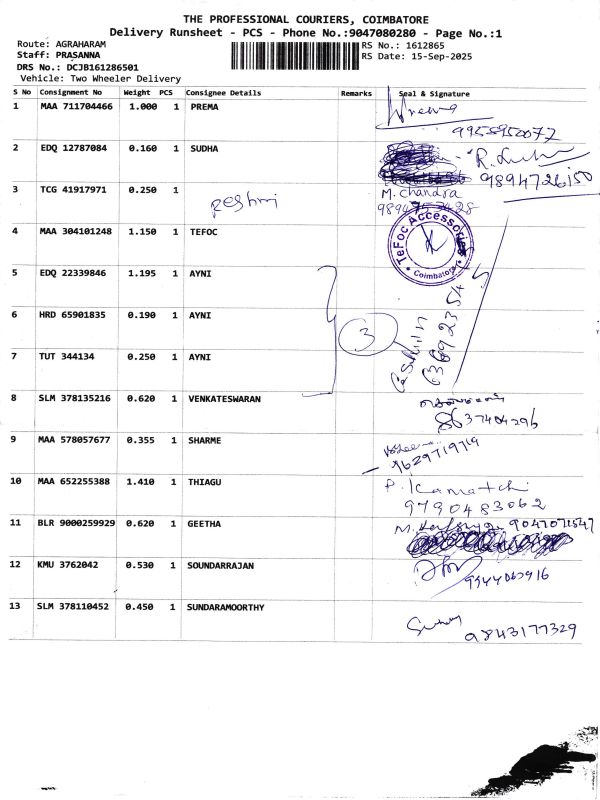 THE PROFESSIONAL COURIERS, COIMBATORE
Delivery Runsheet - PCS - Phone No.:9047080280 - Page No.:1
Route: AGRAHARAM RS No.: 1612865
Staff: PRASANNA RS Date: 15-Sep-2025
DRS No.: DCJB161286501
Vehicle: Two Wheeler Delivery
S No Consignment No Weight PCS Consignee Details Remarks Seal & Signature
1 MAA 711704466 1.000 1 PREMA
2 EDQ 12787084 0.160 1 SUDHA
9894726150
3 TCG 41917971 0.250 1 M. Chandra
4 MAA 304101248 1.150 1 TEFOC TeFoc Accessories Coimbatore
5 EDQ 22339846 1.195 1 AYNI
6 HRD 65901835 0.190 1 AYNI 3
7 TUT 344134 0.250 1 AYNI
8 SLM 378135216 0.620 1 VENKATESWARAN
8637404296
9 MAA 578057677 0.355 1 SHARME
9629719719
10 MAA 652255388 1.410 1 THIAGU P. Kamatchi
9790483062
11 BLR 9000259929 0.620 1 GEETHA
12 KMU 3762042 0.530 1 SOUNDARRAJAN
13 SLM 378110452 0.450 1 SUNDARAMOORTHY
9843177329